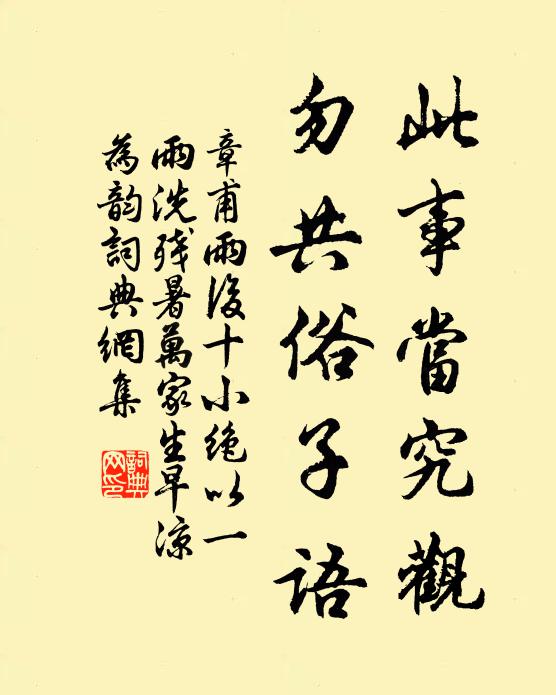 此事當究觀
勿共俗子語
章甫雨後十小絶以一
雨洗残暑萬家生早涼
為韵詞典網集
詞典
网印